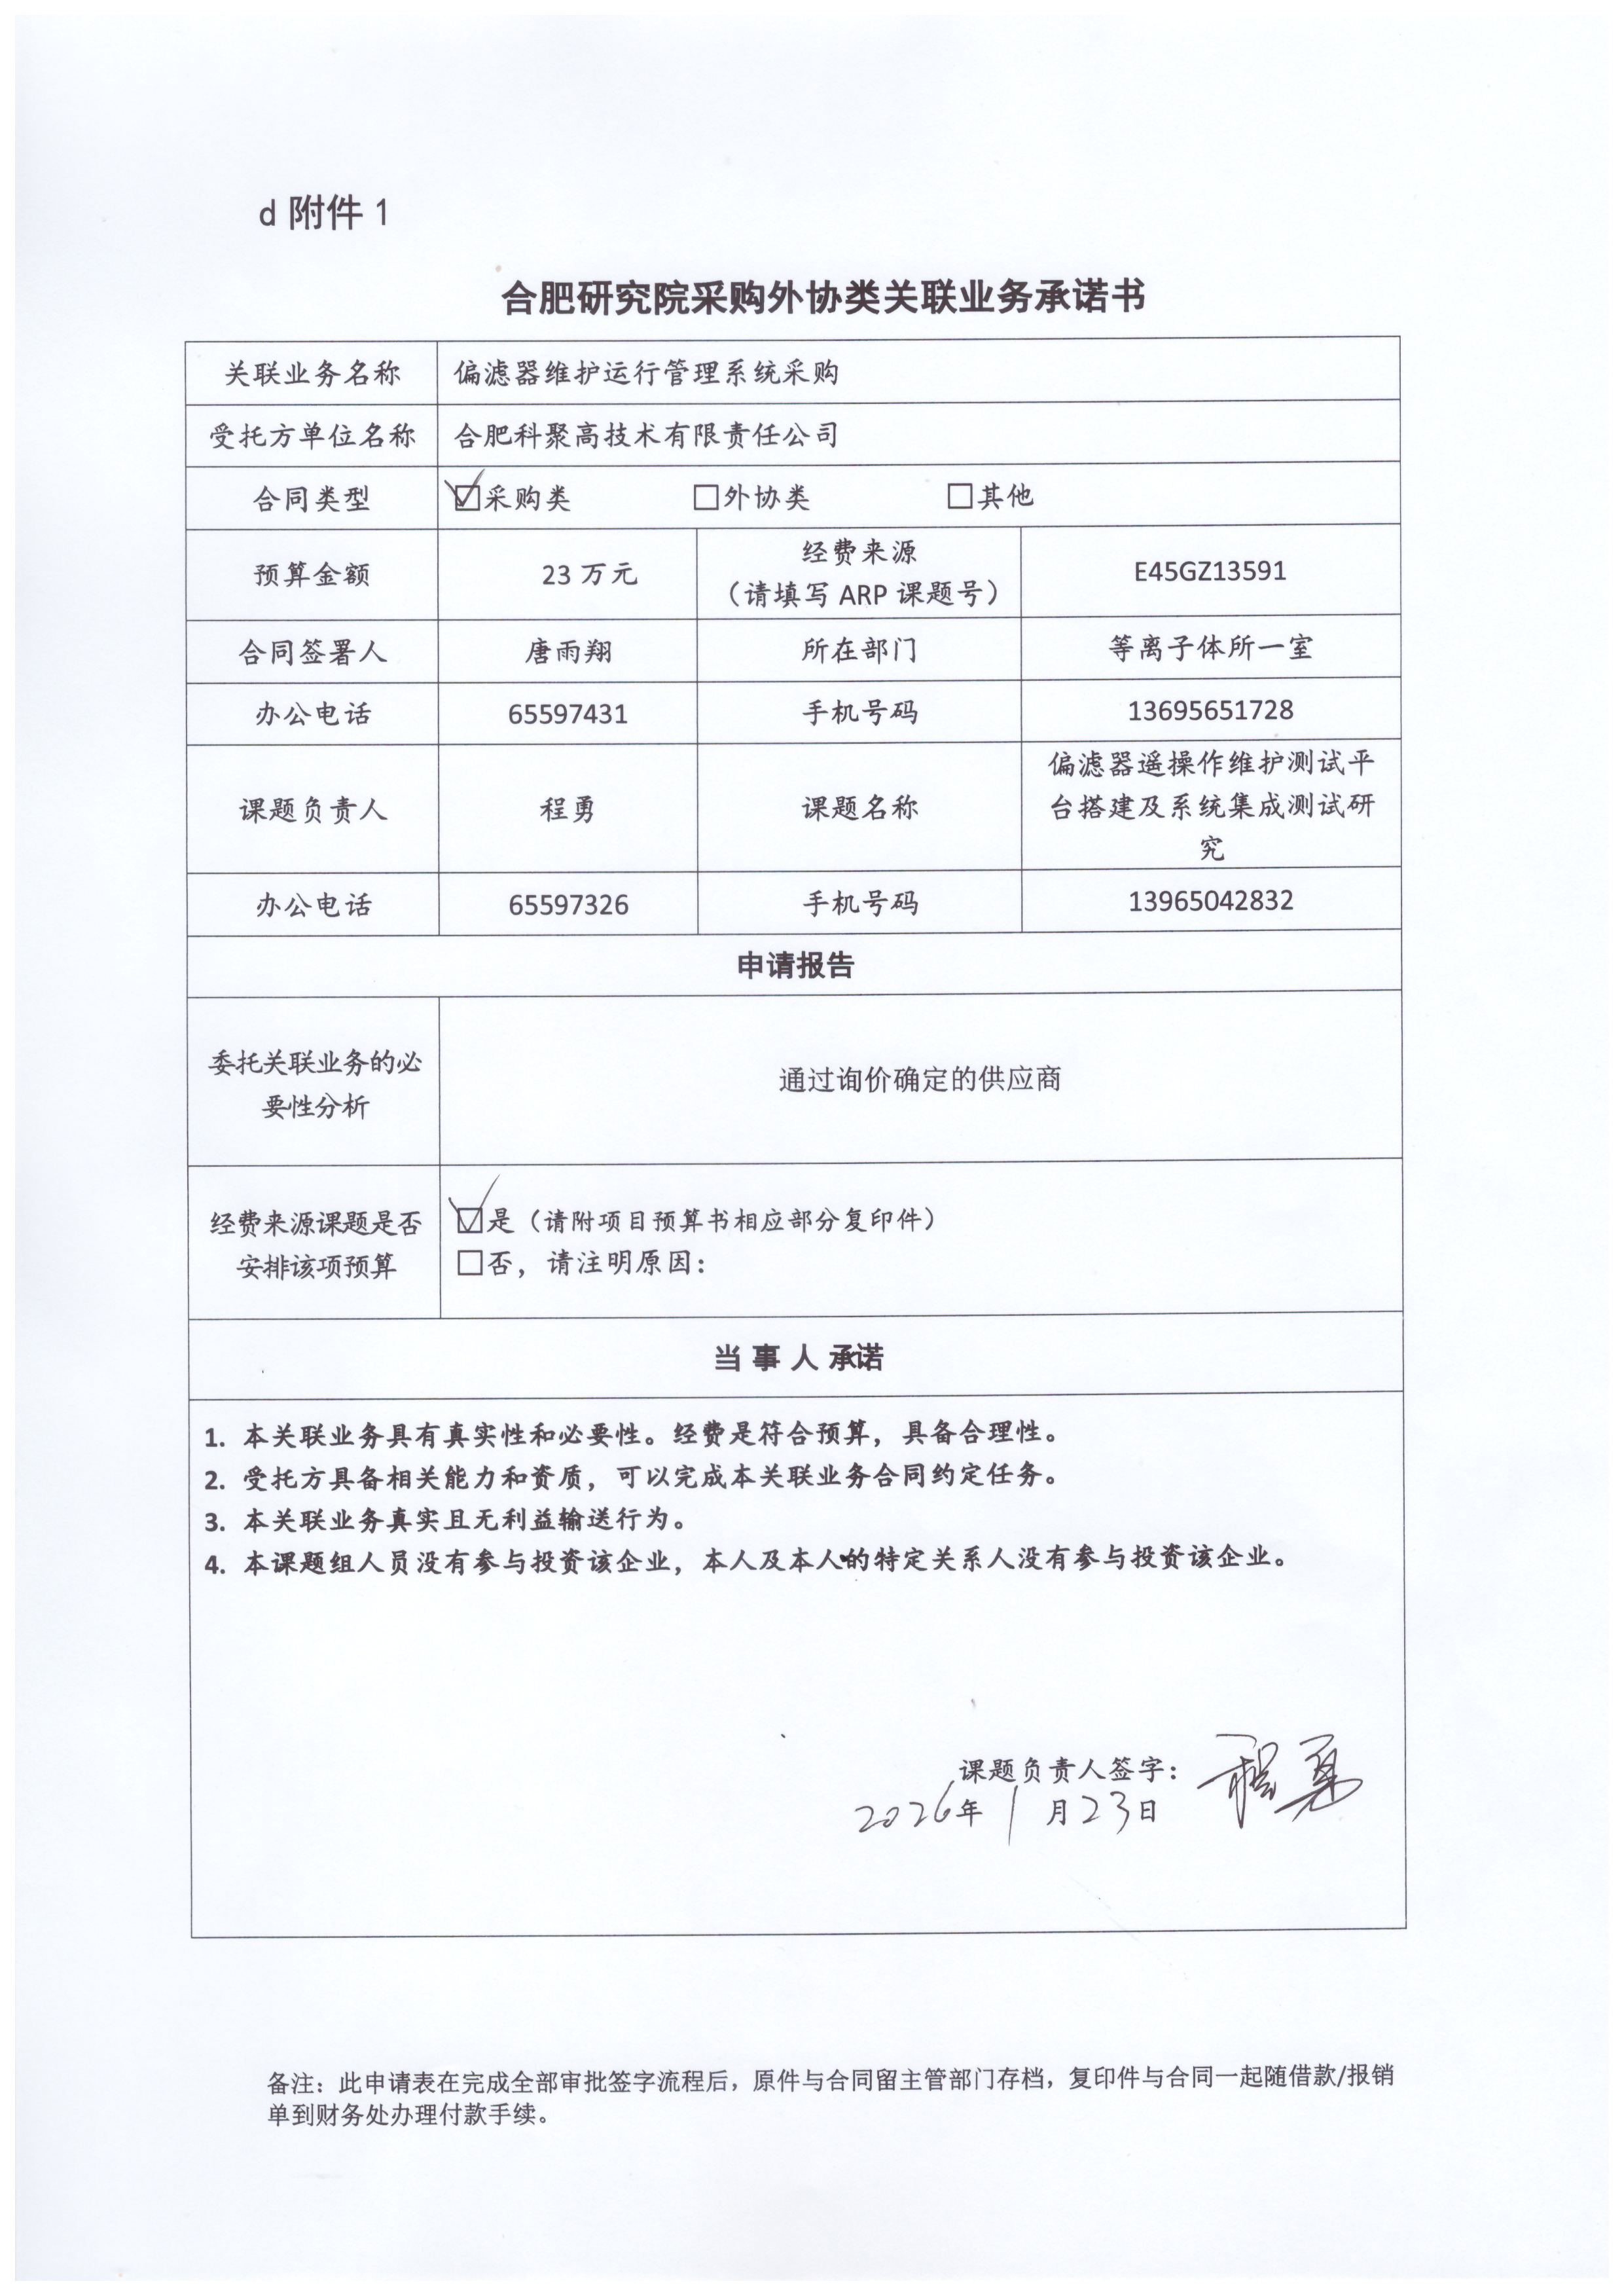 d 附件 1
合肥研究院采购外协类关联业务承诺书
关联业务名称 偏滤器维护运行管理系统采购
受托方单位名称 合肥科聚高技术有限责任公司
合同类型 ☑采购类 □外协类 □其他
预算金额 23 万元 经费来源（请填写 ARP 课题号） E45GZ13591
合同签署人 唐雨翔 所在部门 等离子体所一室
办公电话 65597431 手机号码 13695651728
课题负责人 程勇 课题名称 偏滤器遥操作维护测试平台搭建及系统集成测试研究
办公电话 65597326 手机号码 13965042832
申请报告
委托关联业务的必要性分析 通过询价确定的供应商
经费来源课题是否安排该项预算 ☑是（请附项目预算书相应部分复印件）
□否，请注明原因：
当事人承诺
1. 本关联业务具有真实性和必要性。经费是符合预算，具备合理性。
2. 受托方具备相关能力和资质，可以完成本关联业务合同约定任务。
3. 本关联业务真实且无利益输送行为。
4. 本课题组人员没有参与投资该企业，本人及本人的特定关系人没有参与投资该企业。
课题负责人签字：程勇
2026年 1 月23日
备注：此申请表在完成全部审批签字流程后，原件与合同留主管部门存档，复印件与合同一起随借款/报销
单到财务处办理付款手续。